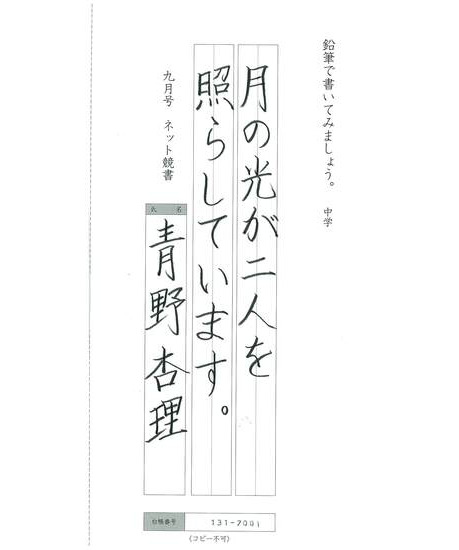 鉛筆で書いてみましょう。 中学
月の光が二人を
照らしています。
九月号 ネット競書
氏 名
青野杏理
台帳番号 131-7001
(コピー不可)